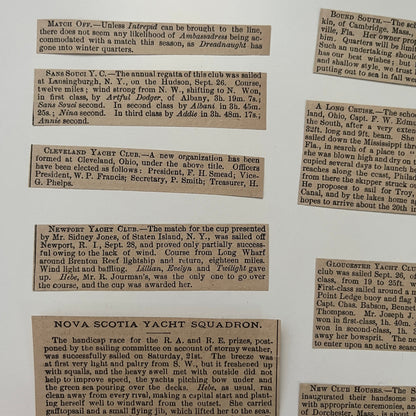 MATCH OFF.—Unless Intrepid can be brought to the line,
there does not seem any likelihood of Ambassadress being ac-
commodated with a match this season, as Dreadnaught has
gone into winter quarters.
SANS SOUCI Y. C.—The annual regatta of this club was sailed
at Lansingburgh, N. Y., on the Hudson, Sept. 26. Course,
twelve miles; wind strong from N. W., shifting to N. Won,
in first class, by Artful Dodger, of Albany, 3h. 19m. 7s.;
Sans Souci second. In second class by Albani in 3h. 45m.
25s.; Nina second. In third class by Addie in 3h. 48m. 17s.;
Annie second.
CLEVELAND YACHT CLUB.—A new organization has been
formed at Cleveland, Ohio, under the above title. Officers
have been elected as follows: President, F. H. Smead; Vice-
President, W. P. Francis; Secretary, P. Smith; Treasurer, H.
G. Phelps.
NEWPORT YACHT CLUB.—The match for the cup presented
by Mr. Sidney Jones, of Staten Island, N. Y., was sailed off
Newport, R. I., Sept. 28, and proved only partially success-
ful owing to the lack of wind. Course from Long Wharf
around Brenton Reef lightship and return, eighteen miles.
Wind light and baffling. Lillian, Evelyn and Twilight gave
up. Hebe, Mr. R. Jourman's, was the only one to go over
the course, and the cup was awarded her.
NOVA SCOTIA YACHT SQUADRON.
The handicap race for the R. A. and R. E. prizes, post-
poned by the sailing committee on account of stormy weather,
was successfully sailed on Saturday, 21st. The breeze was
at first very light and paltry from S. W., but it freshened up
with squalls, and the heavy swell met with outside did not
help to improve speed, the yachts pitching bow under and
the green sea pouring over the decks. Hebe, as usual, ran
away from every rival, making a capital start and planting
herself well to windward from the outset. She carried
gafftopsail and a small flying jib, which lifted her to the seas.
BOUND SOUTH.—The
of Cambridge, Mass.,
ville, Fla. Her owner prop
him. Quarters will be lim
Such as our Southern
has our best wishes; but
and shallow style. We trust
putting out to sea in fall we
A LONG CRUISE.—The scho
land, Ohio, Capt. F. W. Edmu
the South, after a very exten
32ft. long and 9ft. beam. She
sailed down the Mississippi thro
Fla., in search of a place to
she was blown high and dry on
cupied several days to launch he
reaches along the coast, Philad
from there the skipper struck
He proposes to sail for Troy,
Canal, and by the lakes home ag
hopes to arrive about the 20th in
GLOUCESTER YACHT CLU
club was sailed Sept. 26, of
class, from 19 to 25ft. w
First-class sailed around a m
Point Ledge buoy and fla
Capt. Chas. Babson, Bennet
Thompson. Mr. Joseph J.
won in first-class, 1h. 40m.
won in second-class, 1h.
away her bowsprit. The ne
to enter upon an active seaso
NEW CLUB HOUSES.—The S
inaugurated their handsome
with appropriate ceremonies
of Dorchester, Mass., is about